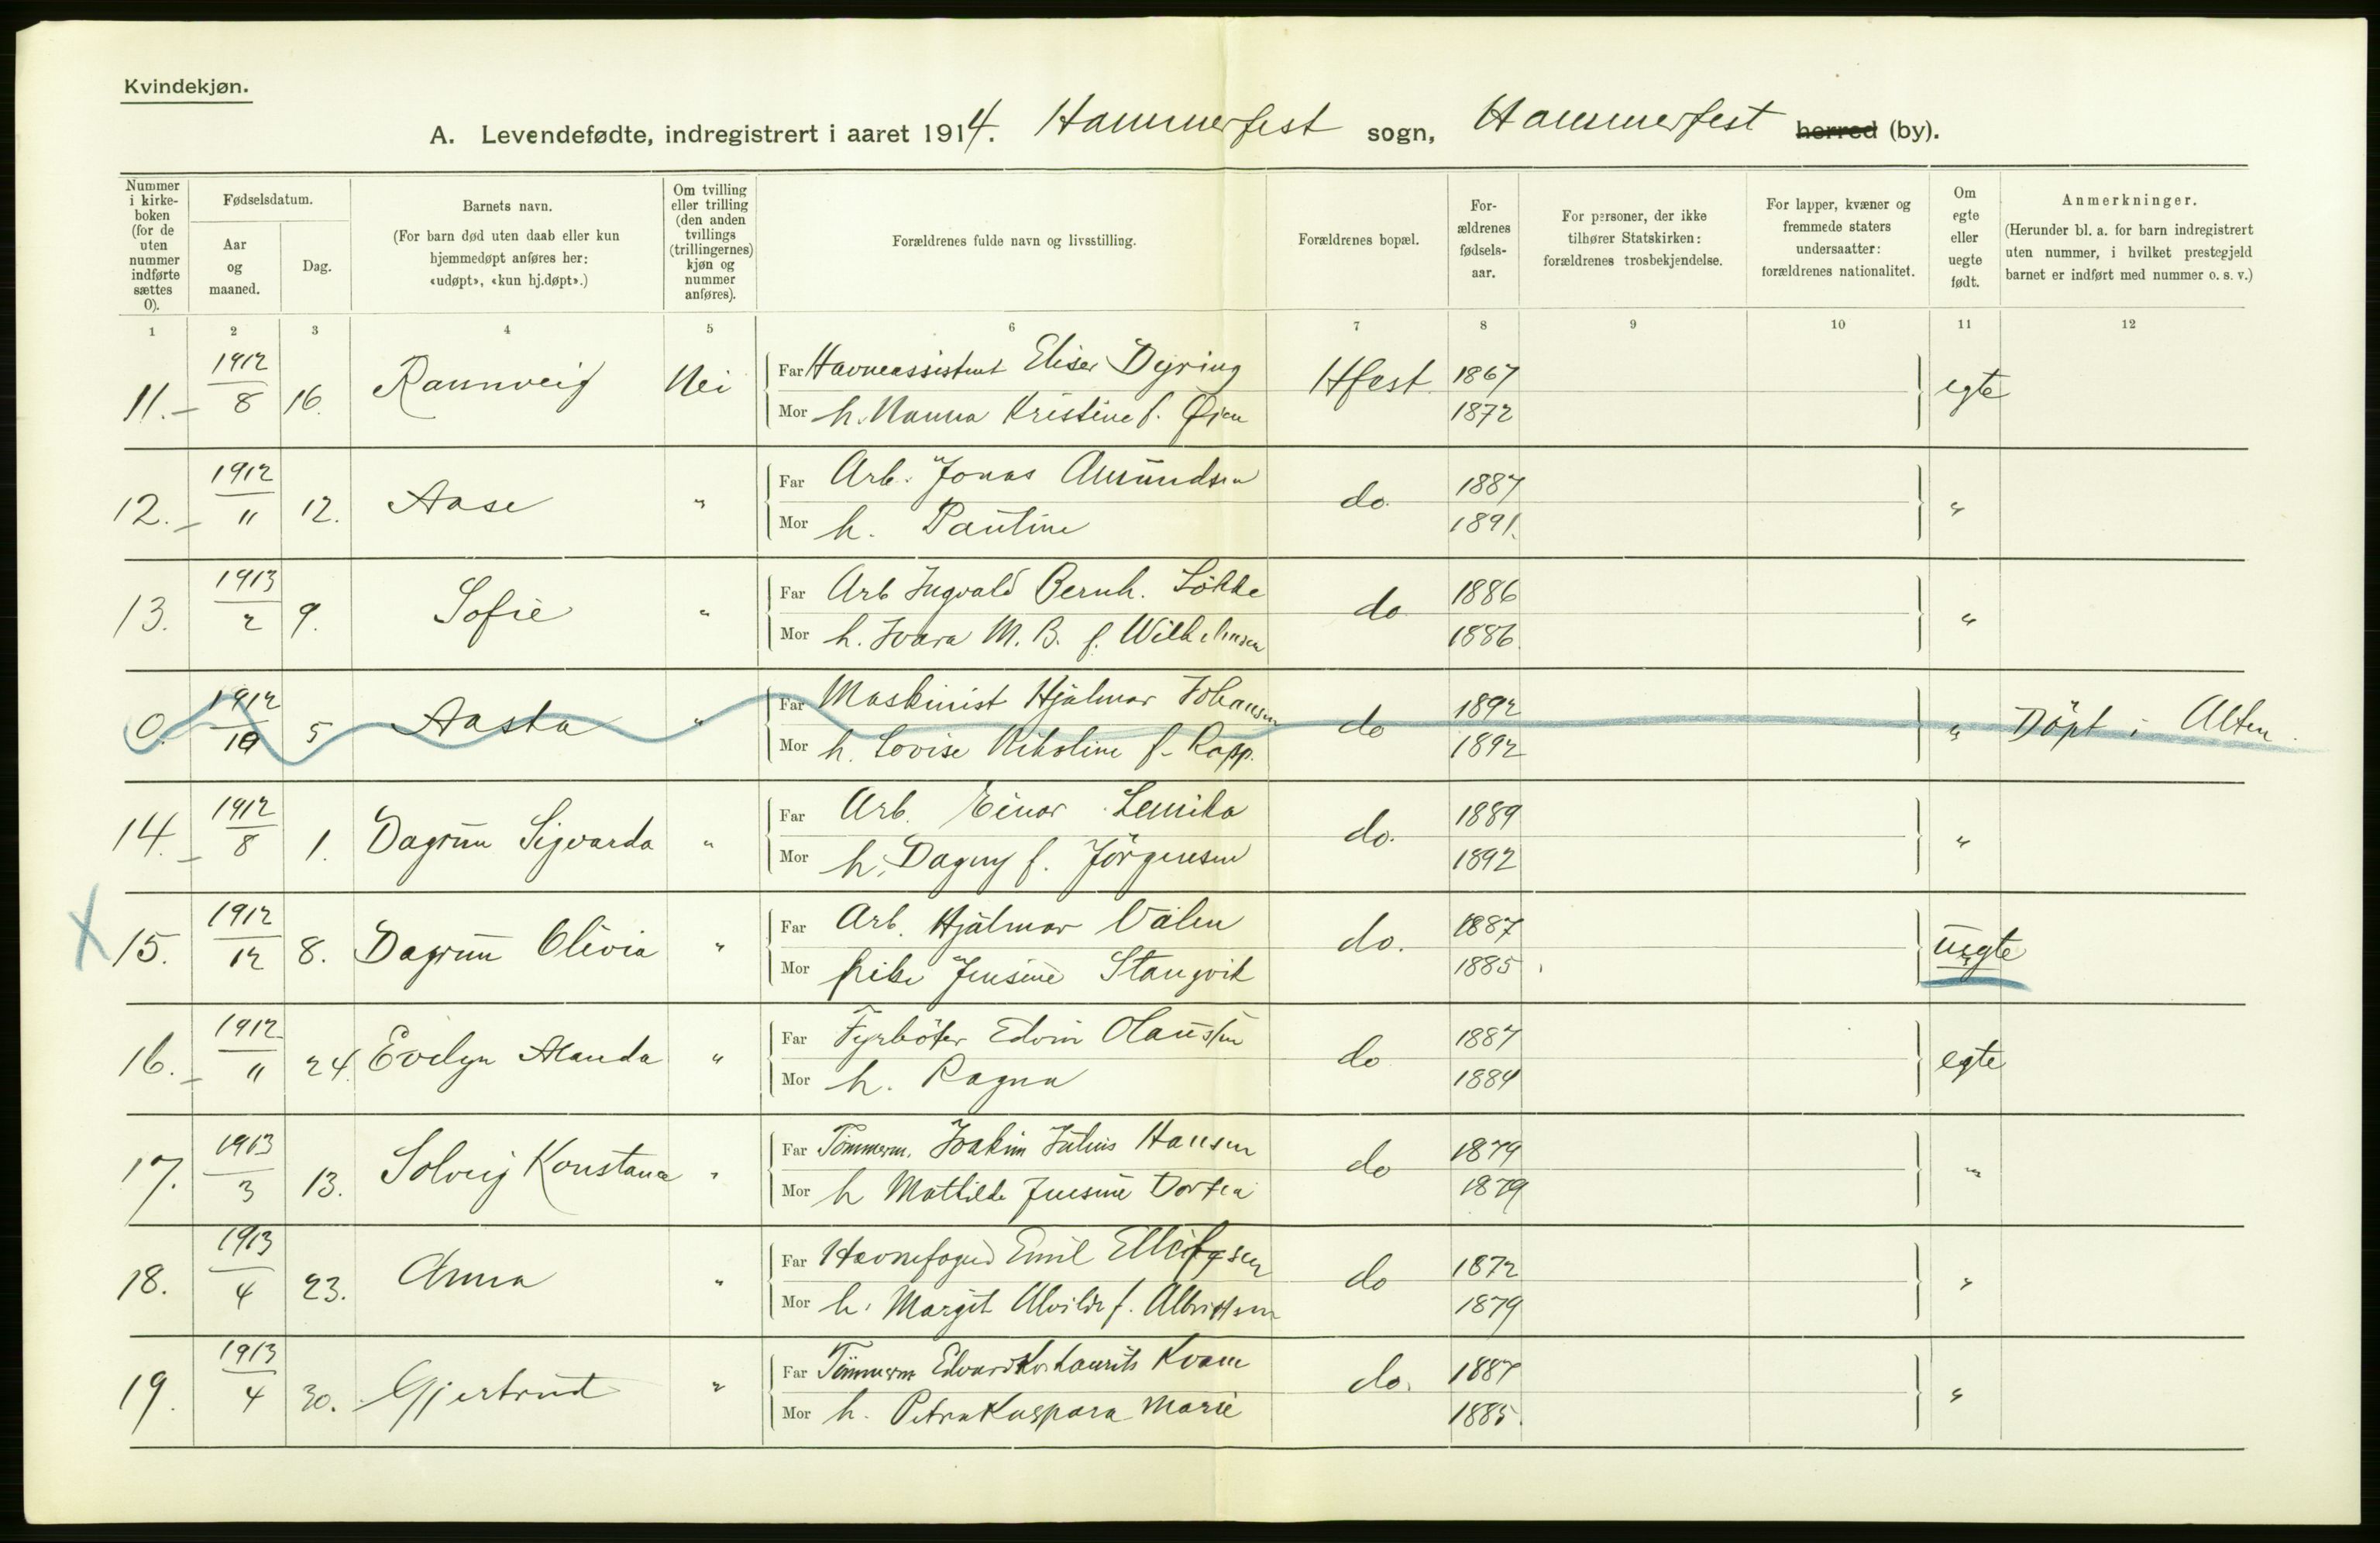 Kvindekjøn.
A. Levendefødte, indregistrert i aaret 1914. Hammerfest sogn, Hammerfest herred (by).
Nummer i kirke-boken (for de uten nummer indførte sættes 0).
Fødselsdatum.
Aar og maaned.
Dag.
Barnets navn.
(For barn død uten daab eller kun hjemmedøpt anføres her: «udøpt», «kun hj.døpt».)
Om tvilling eller trilling (den anden tvillings (trillingernes) kjøn og nummer anføres).
Forældrenes fulde navn og livsstilling.
Forældrenes bopæl.
For-ældrenes fødsels-aar.
For personer, der ikke tilhører Statskirken: forældrenes trosbekjendelse.
For lapper, kvæner og fremmede staters undersaatter: forældrenes nationalitet.
Om egte eller uegte født.
Anmerkninger.
(Herunder bl. a. for barn indregistrert uten nummer, i hvilket prestegjeld barnet er indført med nummer o. s. v.)
1 2 3 4 5 6 7 8 9 10 11 12
11. 1912 8 16. Rannveig Nei Far Havneassistent Eliser Dyring Hfest 1867 egte
Mor h. Nanna Kristine f. Øien 1872
12. 1912 11 12. Aase " Far Arb. Jonas Amundsen do. 1887 "
Mor h. Pauline 1891.
13. 1913 2 9. Sofie " Far Arb Ingvald Bernh. Lökke do 1886 "
Mor h. Ivara M. B. f. Wilhelmsen 1886.
0. 1912 10 5 Aasta " Far Maskinist Hjalmar Johansen do 1892 " Döpt i Alten.
Mor h. Lovise Nikoline f. Rapp. 1892
14. 1912 8 1. Dagrun Sigvarda " Far Arb. Einar Lemika do. 1889 "
Mor h. Dagny f. Jörgensen 1892
X 15. 1912 12 8. Dagrun Olivia " Far Arb. Hjalmar Valen do. 1887 uegte
Mor pike Jensine Stangvik 1885
16. 1912 11 24. Evelyn Alanda " Far Fyrböter Edvin Olaussen do 1887 egte
Mor h. Ragna 1884
17. 1913 3 13. Solveig Konstance " Far Tömmerm. Joakim Julius Hansen do 1879 "
Mor h Mathilde Jensine Dortea 1879
18. 1913 4 23. Anna " Far Havnefoged Emil Ellefgsen do 1872 "
Mor h. Margit Alvilde f. Albrigtsen 1879
19. 1913 4 30. Gjertrud " Far Tömmerm Edvard Laurits Kvam do. 1887 "
Mor h. Petra Kaspara Marie 1885.